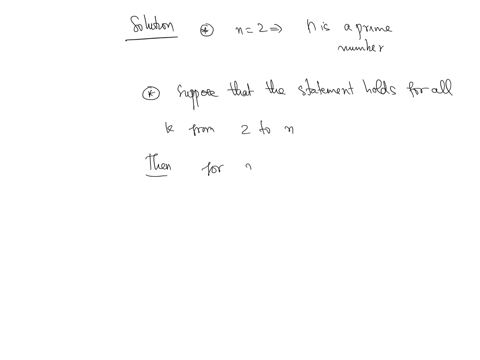 Solution * n = 2 ⇒ n is a prime
number
* Suppose that the statement holds for all
k from 2 to n
Then for